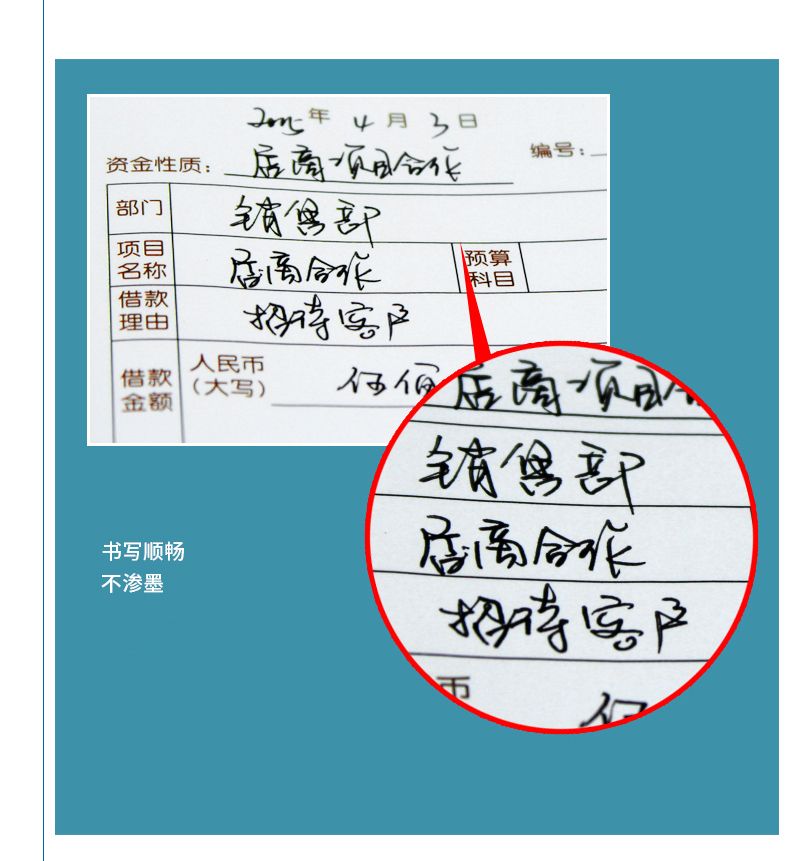 2025年 4月 3日
编号:
资金性质: 店商项目合作
部门 销售部
项目名称 店商合作 预算科目
借款理由 招待客户
借款金额 人民币(大写) 伍佰
店商项目合
销售部
店商合作
招待客户
币 伍
书写顺畅
不渗墨